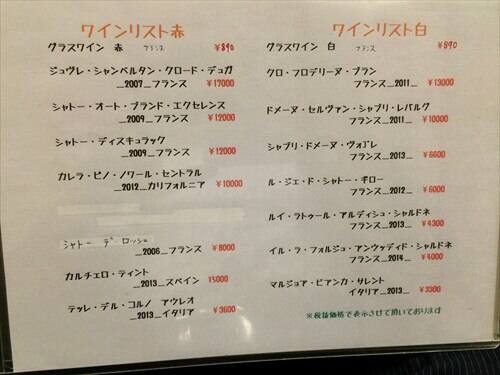 ワインリスト赤
グラスワイン 赤 フランス ¥890
ジュヴレ・シャンベルタン・クロード・デュガ
__2007__フランス ¥17000
シャトー・オート・ブランド・エクセレンス
__2009__フランス ¥12000
シャトー・ディスキュラック
__2009__フランス ¥12000
カレラ・ピノ・ノワール・セントラル
__2012__カリフォルニア ¥10000
シャトー デ ロッシュ
__2006__フランス ¥8000
カルチェロ・ティント
__2013__スペイン ¥5000
テッレ・デル・コルノ アウレオ
__2013__イタリア ¥3600
ワインリスト白
グラスワイン 白 フランス ¥890
クロ・フロデリーヌ・ブラン
フランス__2011__ ¥13000
ドメーヌ・セルヴァン・シャブリ・レバルグ
フランス__2011__ ¥10000
シャブリ・ドメーヌ・ヴォゴレ
フランス__2013__ ¥6600
ル・ジェ・ド・シャトー・ギロー
フランス__2012__ ¥6000
ルイ・ラトゥール・アルディシュ・シャルドネ
フランス__2013__ ¥4300
イル・ラ・フォルジュ・アンウッディド・シャルドネ
フランス__2014__ ¥4000
マルジョア・ビアンカ・サレント
イタリア__2013__ ¥3300
※税抜価格で表示させて頂いております